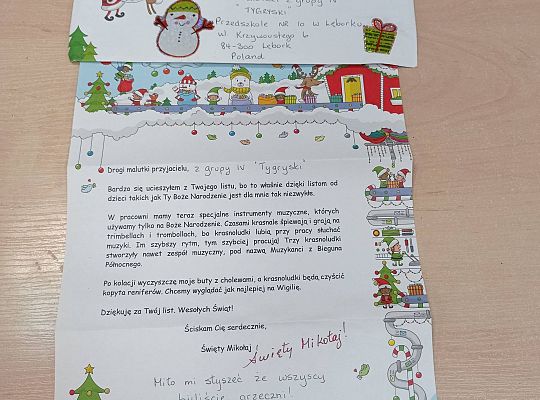 z grupy IV
"TYGRYSKI"
Przedszkole NR 10 w Lęborku
ul Krzywoustego 6
84-300 Lębork
Poland
Drogi malutki przyjacielu, z grupy IV "Tygryski"
Bardzo się ucieszyłem z Twojego listu, bo to właśnie dzięki listom od
dzieci takich jak Ty Boże Narodzenie jest dla mnie tak niezwykłe.
W pracowni mamy teraz specjalne instrumenty muzyczne, których
używamy tylko na Boże Narodzenie. Czasami krasnale śpiewają i grają na
trimbellach i trombollach, bo krasnoludki lubią przy pracy słuchać
muzyki. Im szybszy rytm, tym szybciej pracują! Trzy krasnoludki
stworzyły nawet zespół muzyczny, pod nazwą Muzykanci z Bieguna
Północnego.
Po kolacji wyczyszczę moje buty z cholewami, a krasnoludki będą czyścić
kopyta reniferów. Chcemy wyglądać jak najlepiej na Wigilię.
Dziękuję za Twój list. Wesołych Świąt!
Ściskam Cię serdecznie,
Święty Mikołaj Święty Mikołaj!
Miło mi słyszeć że wszyscy
byliście grzeczni!